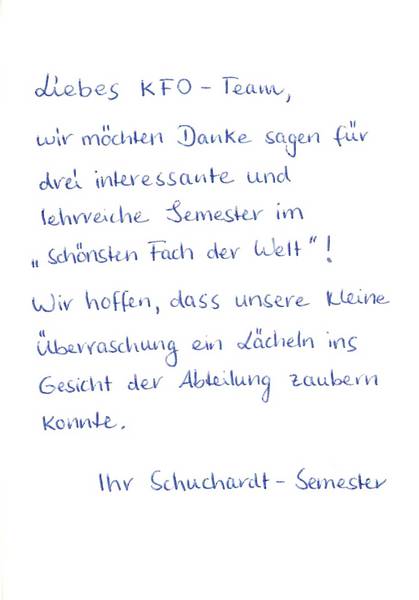 Liebes KFO-Team,
wir möchten Danke sagen für
drei interessante und
lehrreiche Semester im
„Schönsten Fach der Welt"!
Wir hoffen, dass unsere kleine
Überraschung ein Lächeln ins
Gesicht der Abteilung zaubern
konnte.
Ihr Schuchardt-Semester